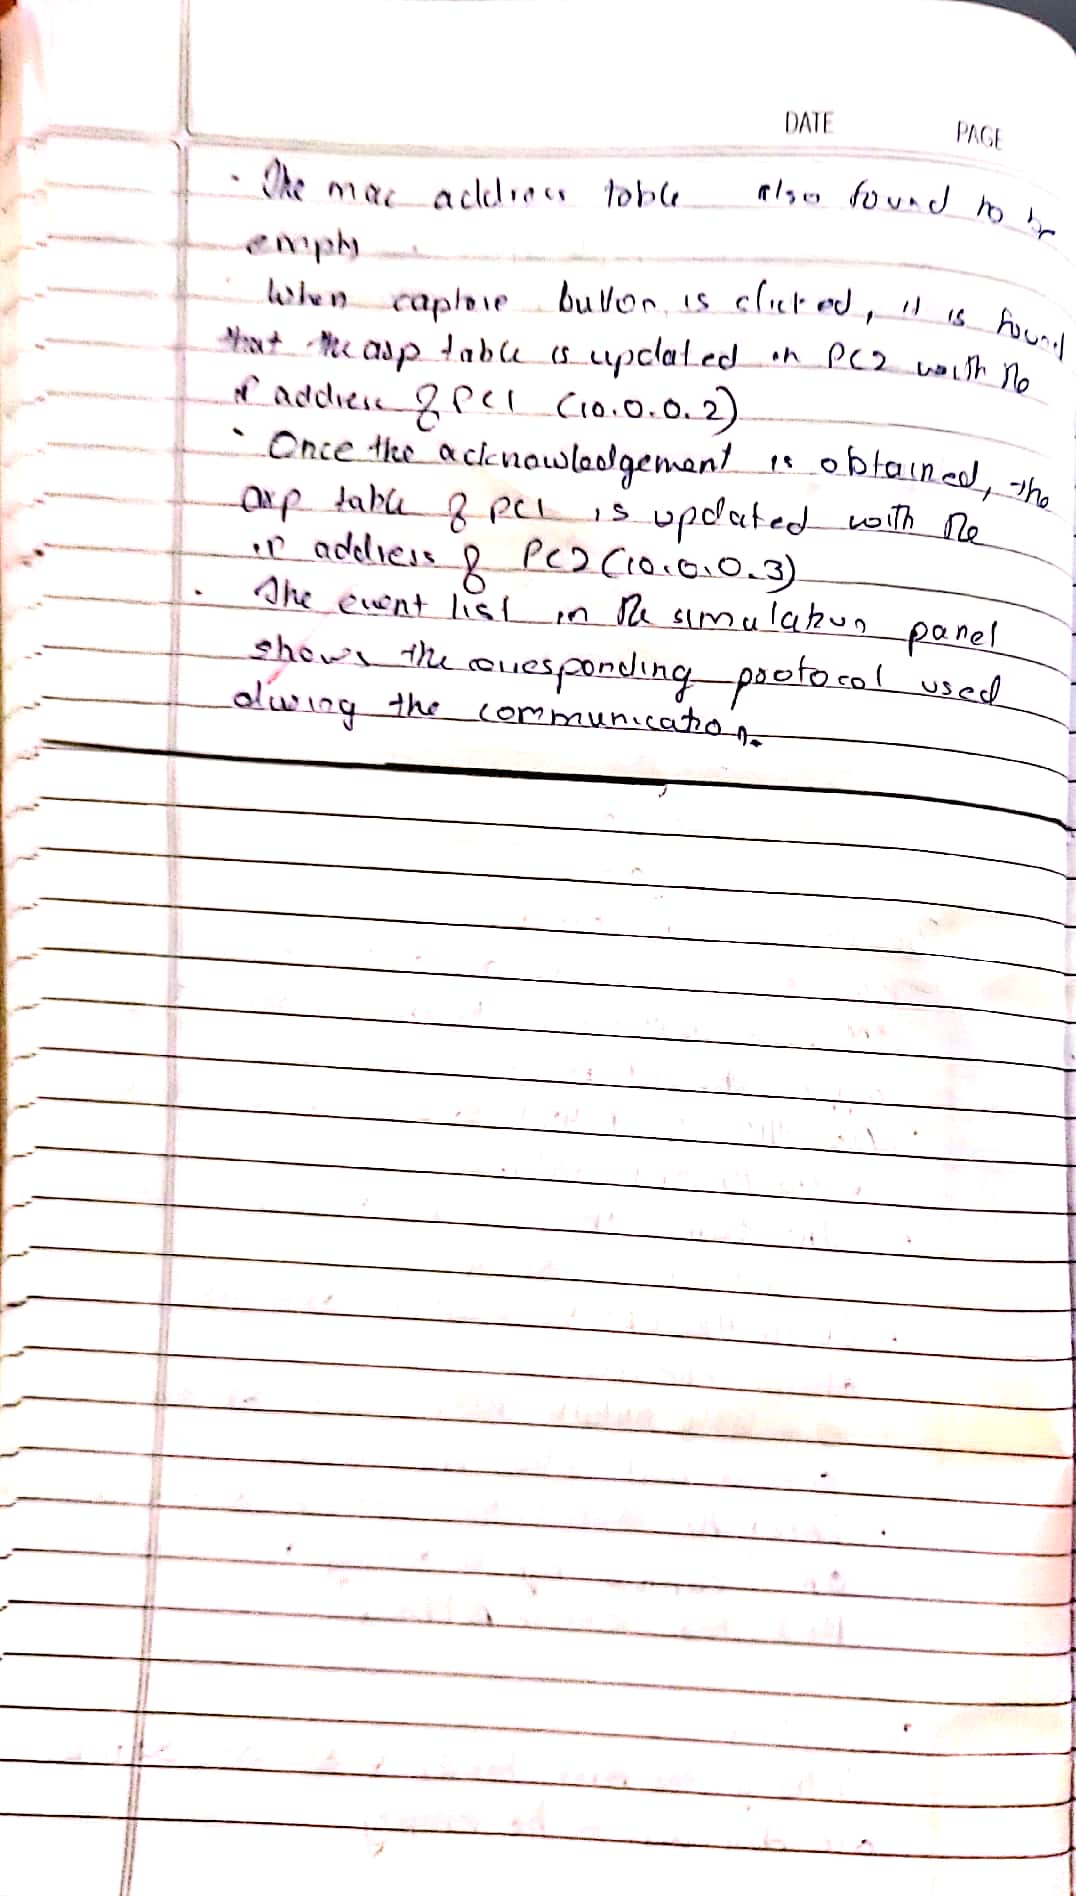 DATE PAGE
· The mac address table also found to be
empty
· When capture button is clicked, it is found
that the arp table is updated in PC2 with the
IP address of PC1 (10.0.0.2)
· Once the acknowledgement is obtained, the
arp table of PC1 is updated with the
ip address of PC2 (10.0.0.3)
· The event list in the simulation panel
shows the corresponding protocol used
during the communication.